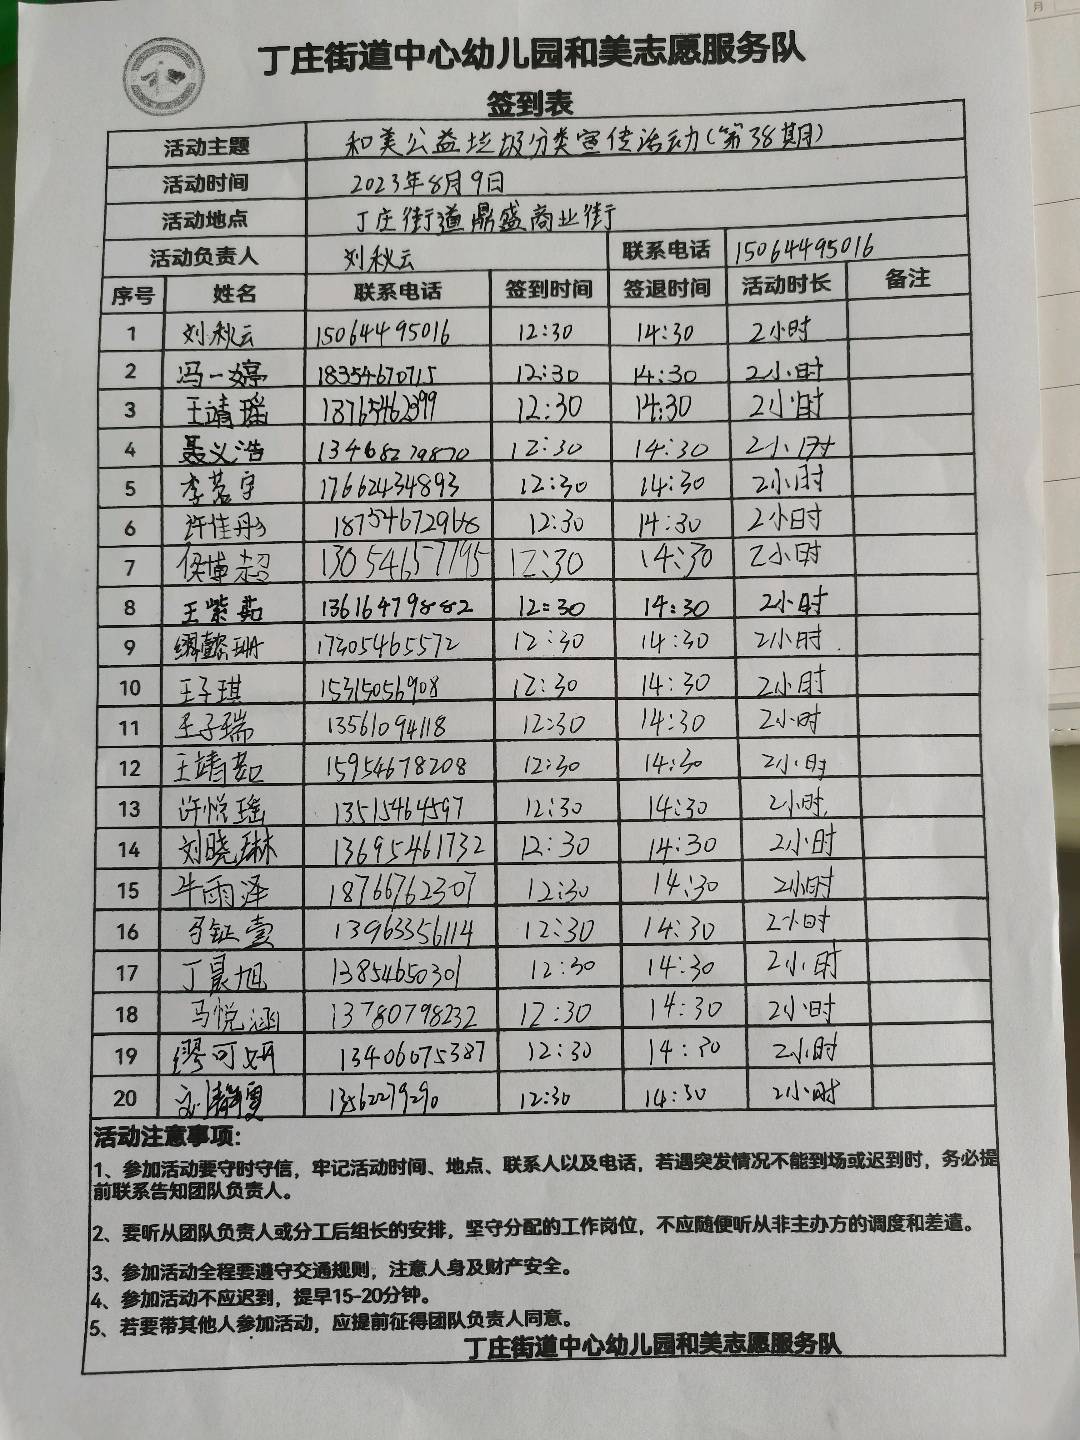 丁庄街道中心幼儿园和美志愿服务队
签到表
活动主题 和美公益垃圾分类宣传活动(第38期)
活动时间 2023年8月9日
活动地点 丁庄街道鼎盛商业街
活动负责人 刘秋云 联系电话 15064495016
序号 姓名 联系电话 签到时间 签退时间 活动时长 备注
1 刘秋云 15064495016 12:30 14:30 2小时
2 冯一婷 18354670715 12:30 14:30 2小时
3 王靖瑶 12:30 14:30 2小时
4 聂义浩 13468279870 12:30 14:30 2小时
5 李茗宇 17662434893 12:30 14:30 2小时
6 许佳彤 18754672968 12:30 14:30 2小时
7 侯博超 13054657795 12:30 14:30 2小时
8 王紫茹 13616479882 12:30 14:30 2小时
9 懿珊 17305465572 12:30 14:30 2小时
10 王子琪 15315056908 12:30 14:30 2小时
11 王子瑞 13561094118 12:30 14:30 2小时
12 王靖茹 15954678208 12:30 14:30 2小时
13 许悦瑶 13515464597 12:30 14:30 2小时
14 刘晓琳 13695461732 12:30 14:30 2小时
15 牛雨泽 18766762307 12:30 14:30 2小时
16 马钲壹 13963356114 12:30 14:30 2小时
17 丁晨旭 13854650301 12:30 14:30 2小时
18 马悦涵 13780798232 12:30 14:30 2小时
19 缪可妍 13406075387 12:30 14:30 2小时
20 12:30 14:30 2小时
活动注意事项:
1、参加活动要守时守信，牢记活动时间、地点、联系人以及电话，若遇突发情况不能到场或迟到时，务必提
前联系告知团队负责人。
2、要听从团队负责人或分工后组长的安排，坚守分配的工作岗位，不应随便听从非主办方的调度和差遣。
3、参加活动全程要遵守交通规则，注意人身及财产安全。
4、参加活动不应迟到，提早15-20分钟。
5、若要带其他人参加活动，应提前征得团队负责人同意。
丁庄街道中心幼儿园和美志愿服务队